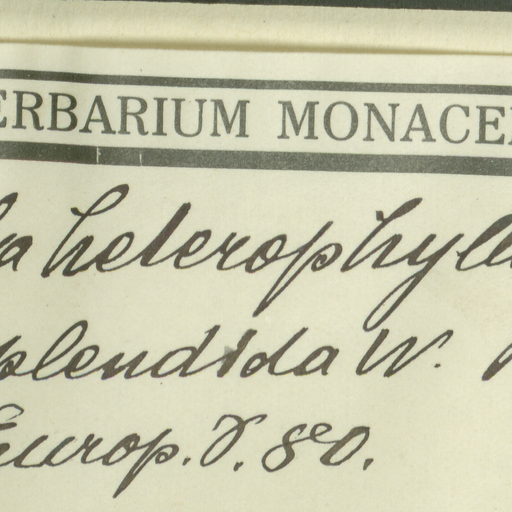 ERBARIUM MONACE
a heterophyll
splendida W.
Europ. V. 80.